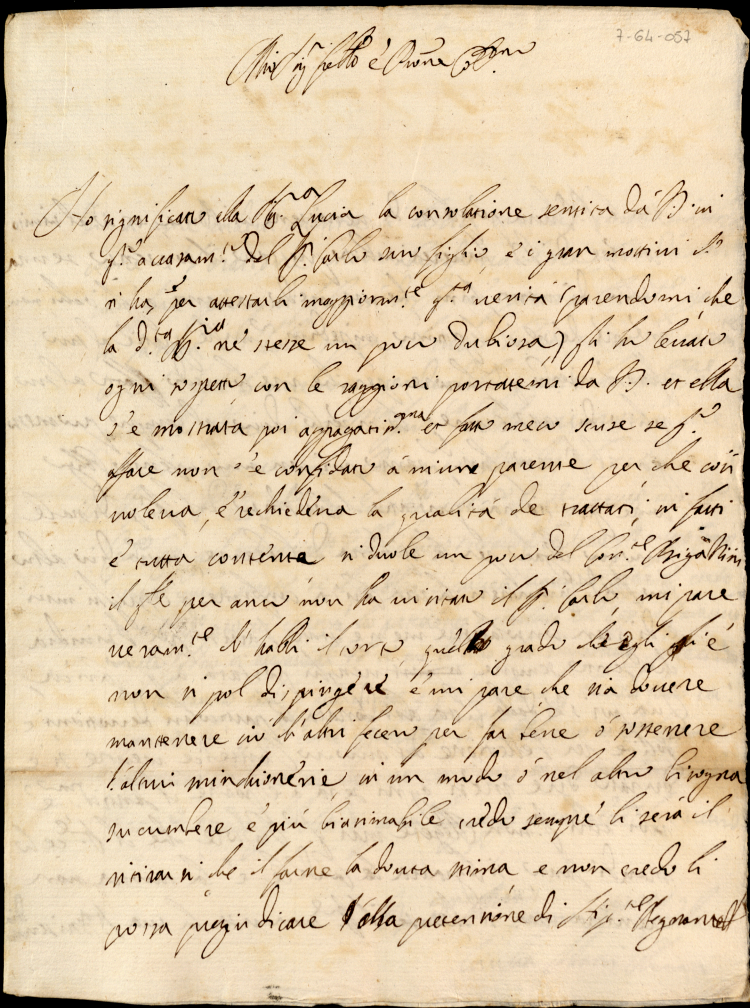 7-64-057
Ho significato alla Sig.ra Lucia la consolatione sentita da V.S. in
q.to accasam.to del S. Carlo suo figlio e i gran mottivi
vi ha, per attestarli maggiorm.te q.ta verità (parendomi che
la d.ta Sig.ra ne stesse un poco dubiosa) gli ho levato
ogni sospetto con le raggioni portatemi da V.S. et ella
s'è mostrata poi appagatis.ma et fatto meco scuse se q.to
affare non s'è confidato à niun parente per che così
voleva, e rechiedeva la qualità de trattati, in fatti
è tutta contenta si duole un poco del
il q.le per anco non ha visitato il S. Carlo, mi pare
veram.te habbi il torto, quello grado che egli è
non si pol dispingere è mi pare che sia dovere
mantenere ciò altri fecero per far bene ò sostenere
l'altrui minchionerie, in un modo ò nel altro bisogna
sucumbere è più biasimabile credo sempre li serà il
ritirarsi che il farne la dovuta stima e non credo li
possa pregiudicare alla pretensione di